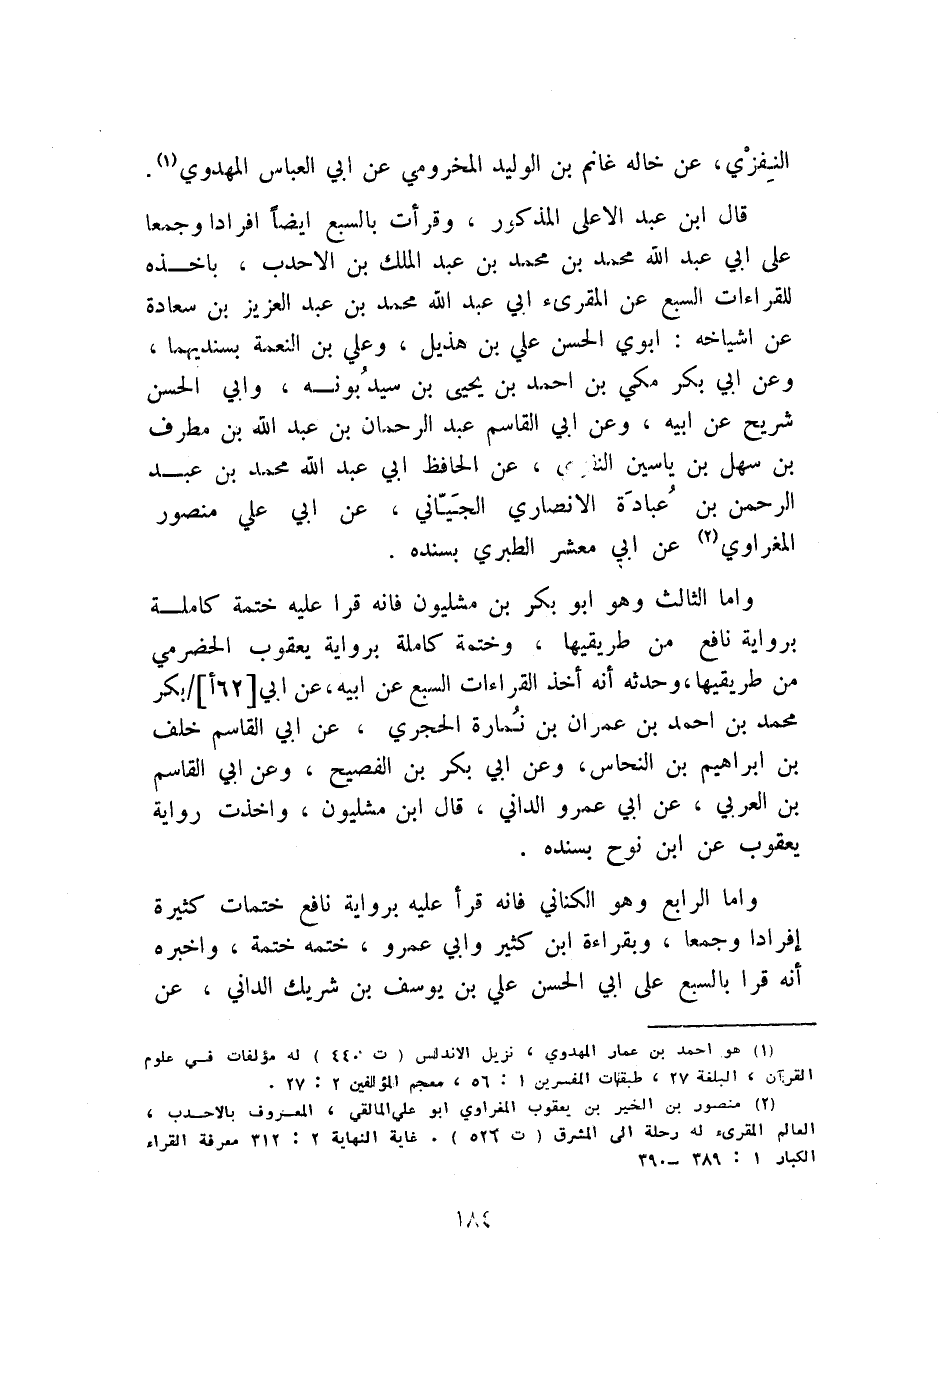 النِفزْي، عن خاله غانم بن الوليد المخرومي عن ابي العباس المهدوي(١).
قال ابن عبد الاعلى المذكور ، وقرأت بالسبع ايضاً افرادا وجمعا
على ابي عبد الله محمد بن محمد بن عبد الملك بن الاحدب ، باخذه
للقراءات السبع عن المقرىء ابي عبد الله محمد بن عبد العزيز بن سعادة
عن اشياخه : ابوي الحسن علي بن هذيل ، وعلي بن النعمة بسنديهما ،
وعن ابي بكر مكي بن احمد بن يحيى بن سيدُبونه ، وابي الحسن
شريح عن ابيه ، وعن ابي القاسم عبد الرحمان بن عبد الله بن مطرف
بن سهل بن ياسين ، عن الحافظ ابي عبد الله محمد بن عبد
الرحمن بن عُبادَة الانصاري الجَيّاني ، عن ابي علي منصور
المغراوي(٢) عن ابي معشر الطبري بسنده .
واما الثالث وهو ابو بكر بن مشليون فانه قرا عليه ختمة كاملة
برواية نافع من طريقيها ، وختمة كاملة برواية يعقوب الحضرمي
من طريقيها، وحدثه أنه أخذ القراءات السبع عن ابيه، عن ابي[٦٢أ]/بكر
محمد بن احمد بن عمران بن نُمارة الحجري ، عن ابي القاسم خلف
بن ابراهيم بن النحاس، وعن ابي بكر بن الفصيح ، وعن ابي القاسم
بن العربي ، عن ابي عمرو الداني ، قال ابن مشليون ، واخذت رواية
يعقوب عن ابن نوح بسنده .
واما الرابع وهو الكناني فانه قرأ عليه برواية نافع ختمات كثيرة
إفرادا وجمعا ، وبقراءة ابن كثير وابي عمرو ، ختمه ختمة ، واخبره
أنه قرا بالسبع على ابي الحسن علي بن يوسف بن شريك الداني ، عن
(١) هو احمد بن عمار المهدوي ، نزيل الاندلس ( ت ٤٤٠ ) له مؤلفات في علوم
القرآن ، البلغة ٢٧ ، طبقات المفسرين ١ : ٥٦ ، معجم المؤلفين ٢ : ٢٧ .
(٢) منصور بن الخير بن يعقوب المغراوي ابو علي المالقي ، المعروف بالاحدب ،
العالم المقرىء له رحلة الى المشرق ( ت ٥٢٦ ) . غاية النهاية ٢ : ٣١٢ معرفة القراء
الكبار ١ : ٣٨٩ – ٣٩٠
١٨٤